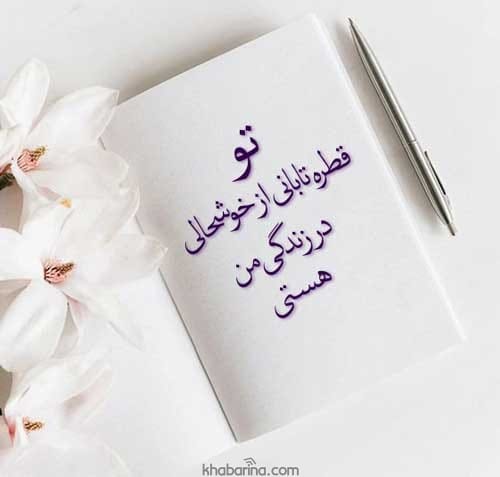 تو
قطره تابانی از خوشحالی
در زندگی من
هستی
khabarina.com